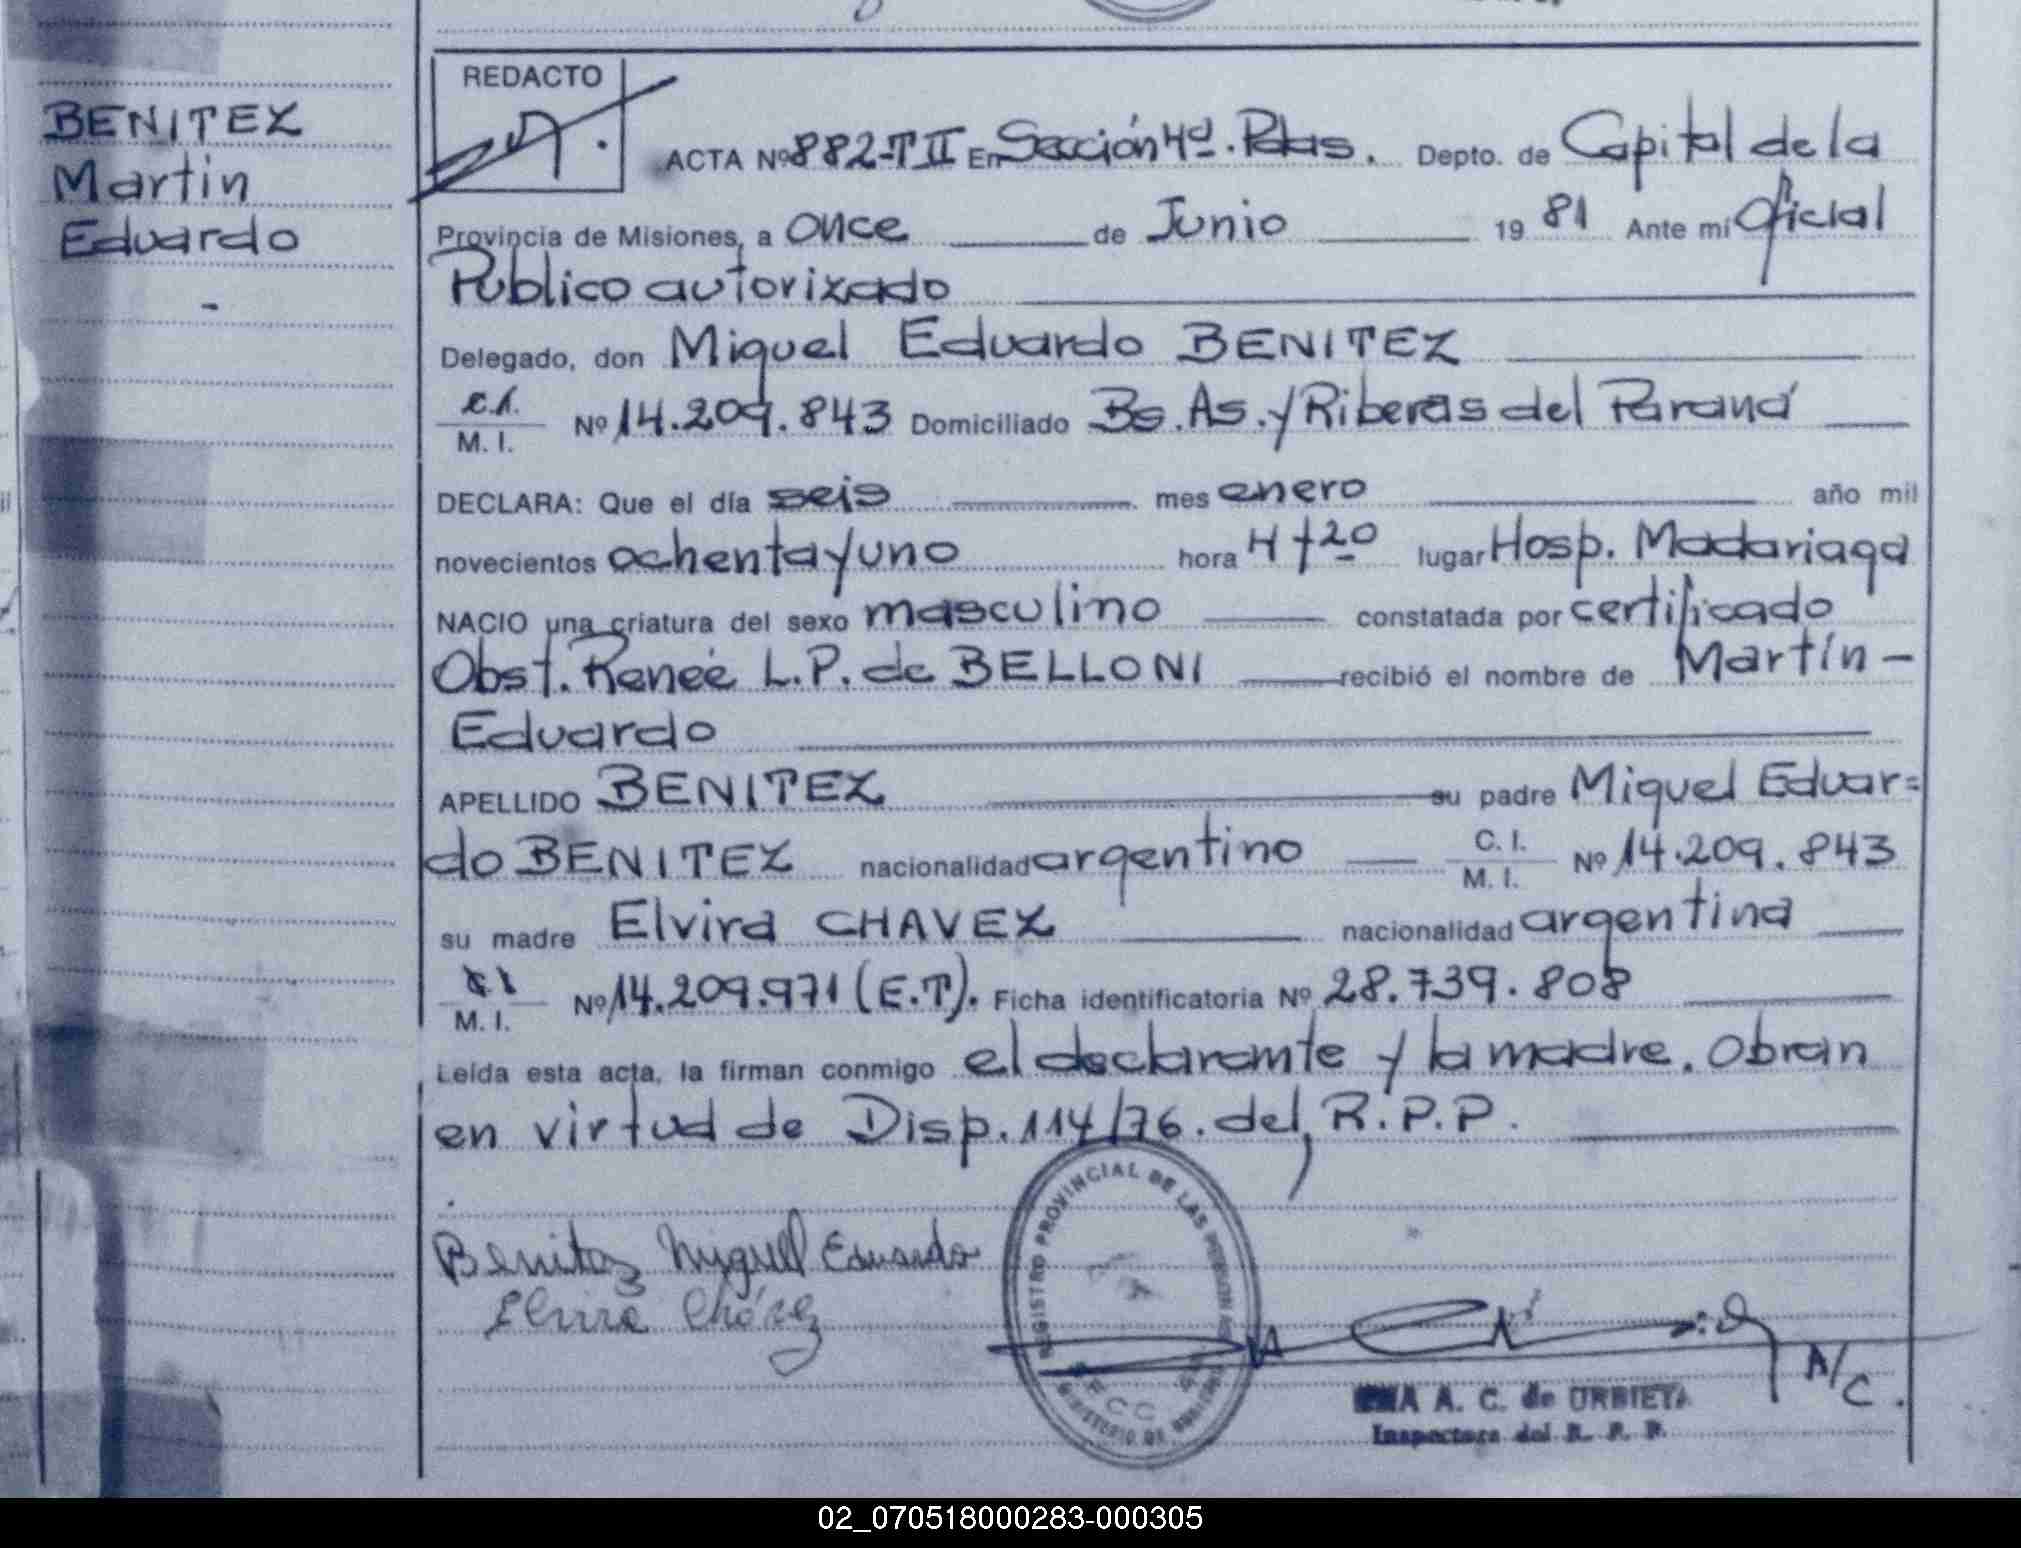 BENITEZ
Martin
Eduardo
-
REDACTO
ACTA Nº 882-T II En Sección 4ª. Pdas. Depto. de Capital de la
Provincia de Misiones, a once de Junio 19 81 Ante mí Oficial
Publico autorizado
Delegado, don Miguel Eduardo BENITEZ
C.I.
M. I. Nº 14.209.843 Domiciliado Bs. As. y Riberas del Paraná
DECLARA: Que el día seis mes enero año mil
novecientos ochenta y uno hora 4 y 20 lugar Hosp. Madariaga
NACIO una criatura del sexo masculino constatada por certificado
Obst. Renée L.P. de BELLONI recibió el nombre de Martín-
Eduardo
APELLIDO BENITEZ su padre Miguel Eduar=
do BENITEZ nacionalidad argentino C. I.
M. I. Nº 14.209.843
su madre Elvira CHAVEZ nacionalidad argentina
M. I. Nº 14.209.971 (E.T). Ficha identificatoria Nº 28.739.808
Leída esta acta, la firman conmigo el declarante y la madre. Obran
en virtud de Disp. 114/76. del R.P.P.
Benitez Miguel Eduardo
Elvira Chávez
REGISTRO PROVINCIAL DE LAS PERSONAS
MINISTERIO DE
A/C.
A. C. de URBIETA
Inspectora del R. P. P.
02_070518000283-000305